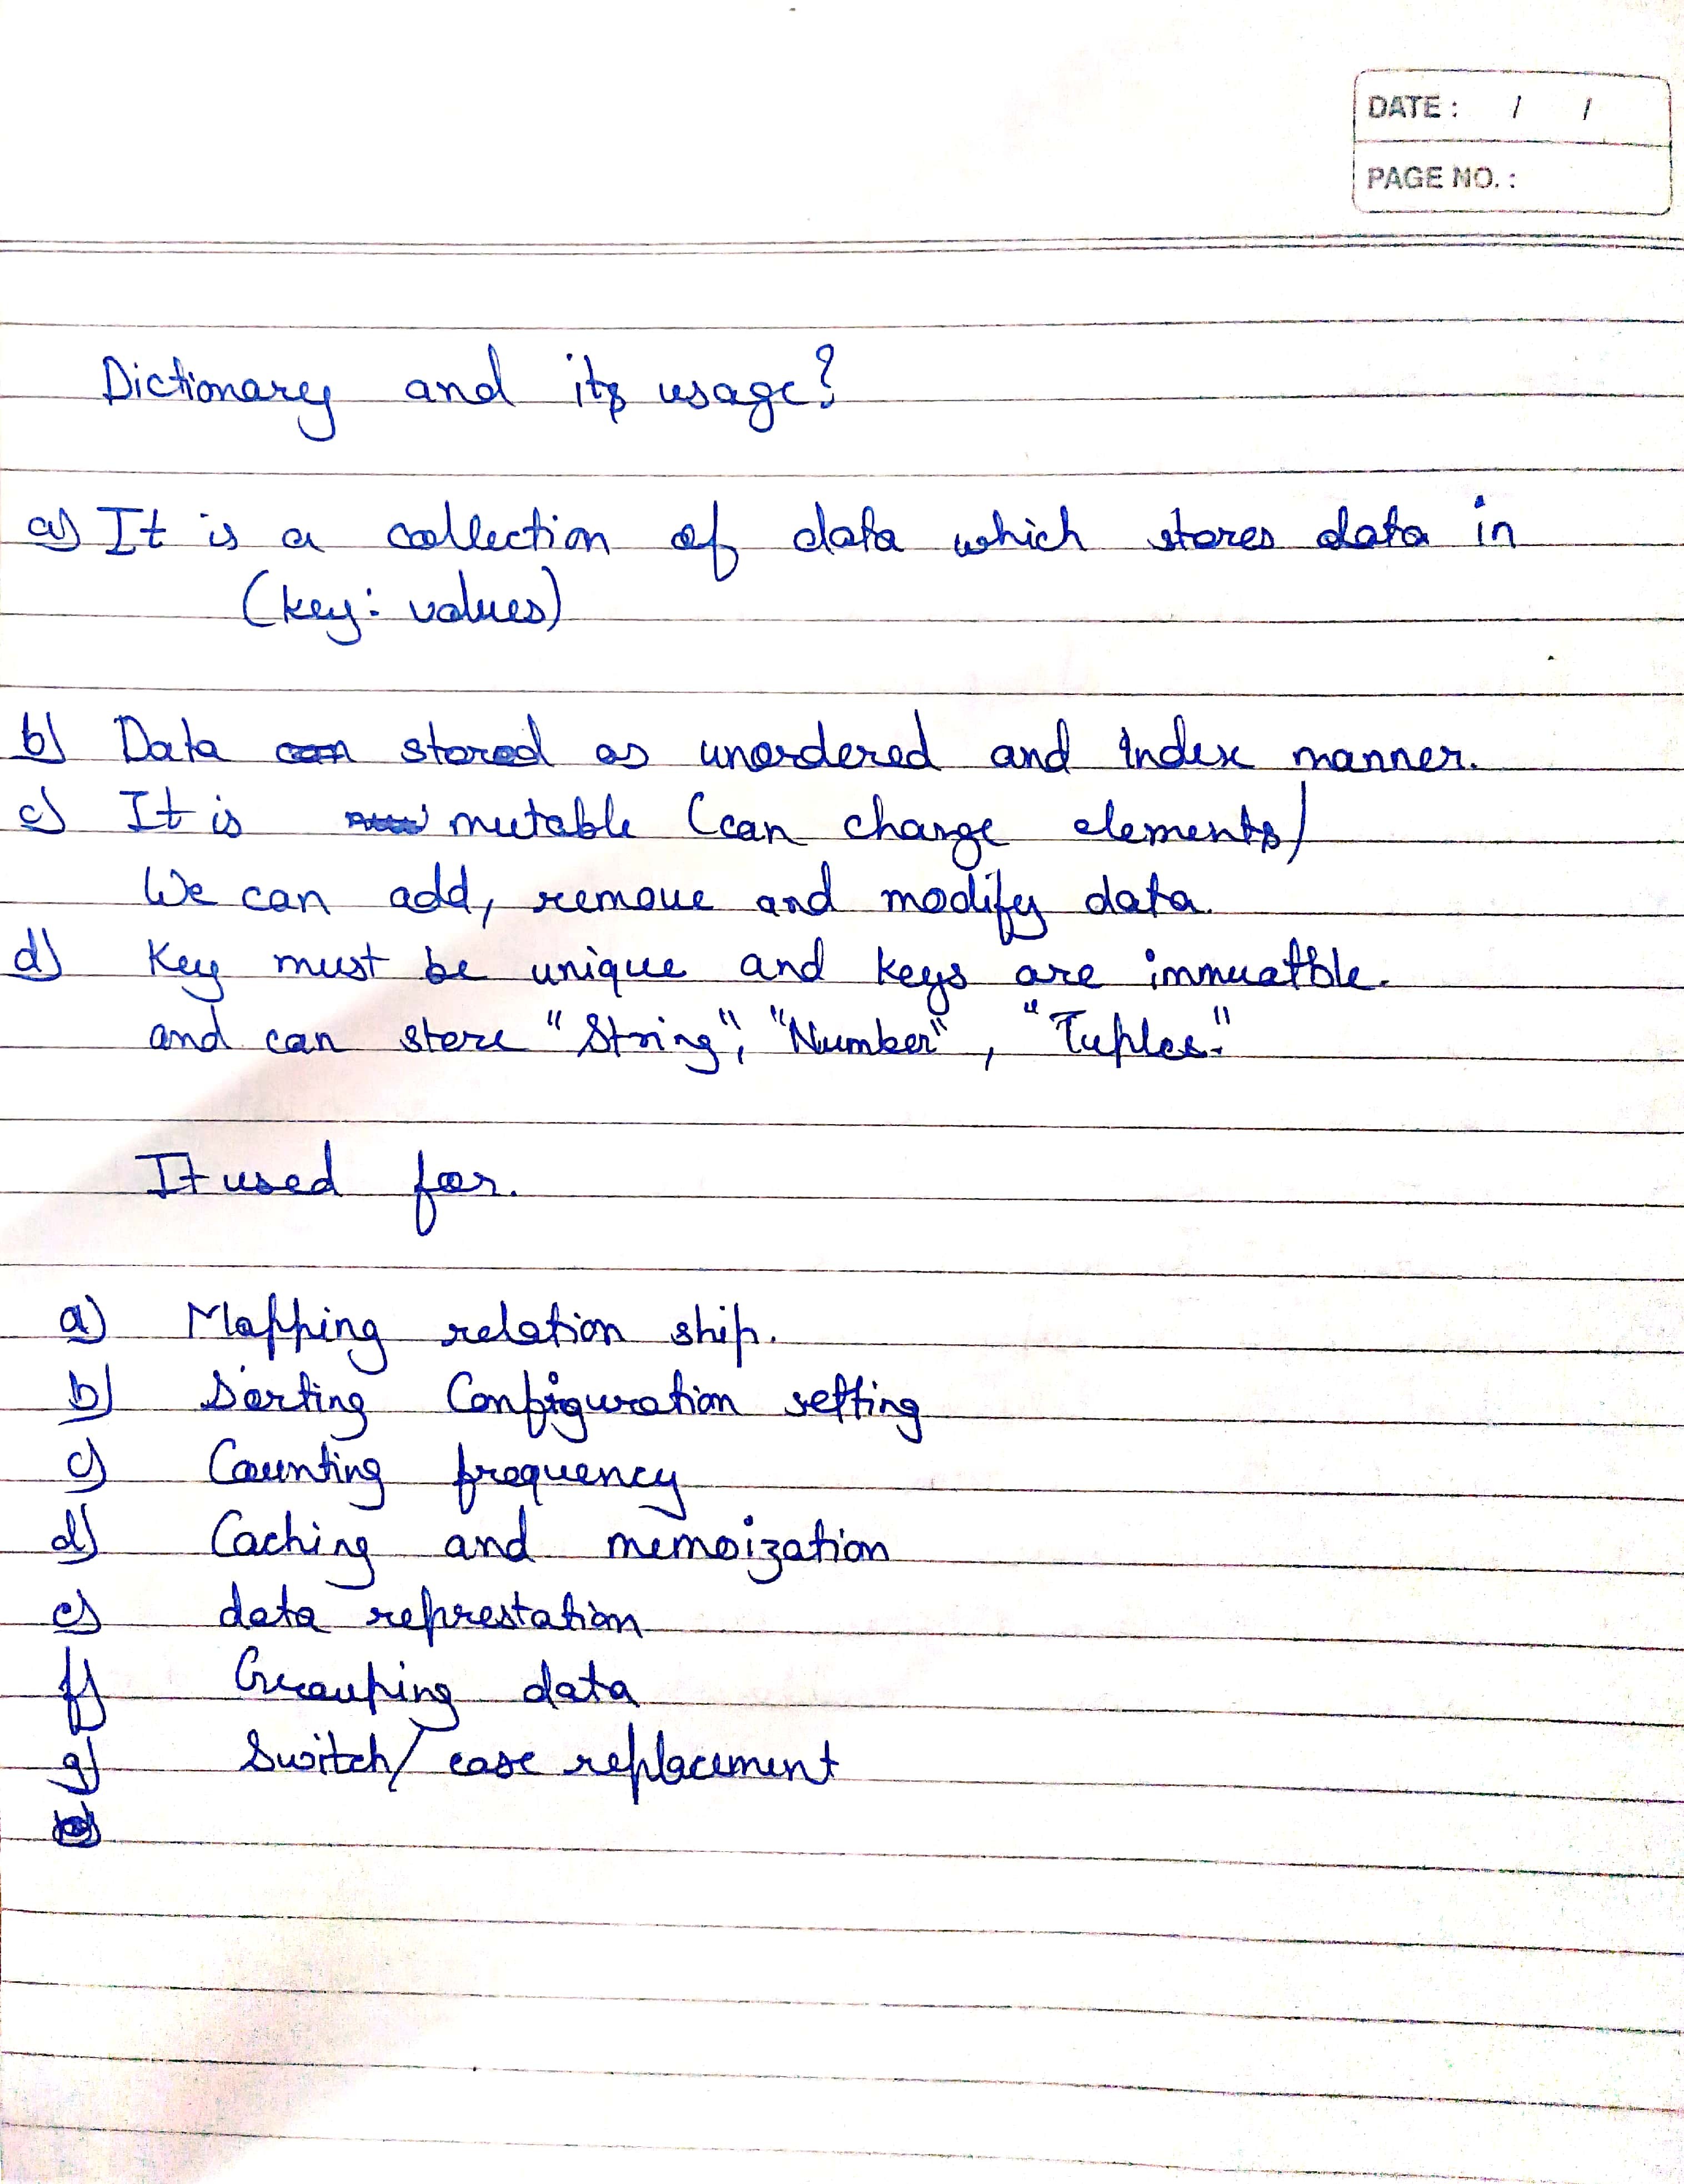 DATE : / /
PAGE NO. :
Dictionary and its usage?
a) It is a collection of data which stores data in
(key: values)
b) Data stored as unordered and index manner.
c) It is mutable (can change elements/
We can add, remove and modify data.
d) Key must be unique and keys are immuatble.
and can store "String", "Number", "Tuples."
It used for.
a) Mapping relation ship.
b) Sorting Configuration setting
c) Counting frequency
d) Caching and memoization
e) data represtation
f) Grouping data
g) Switch/case replacement